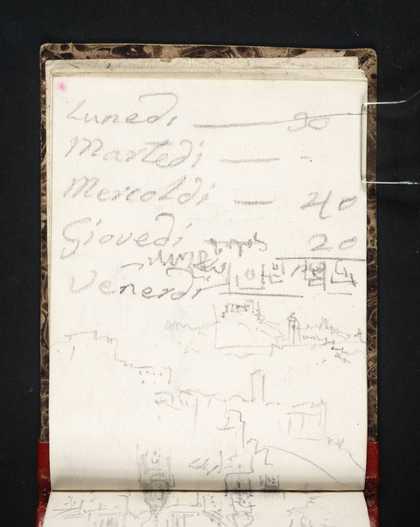 Lunedi — 30
Martedi — -
Mercoldi — 40
Giovedi 20
Venerdi